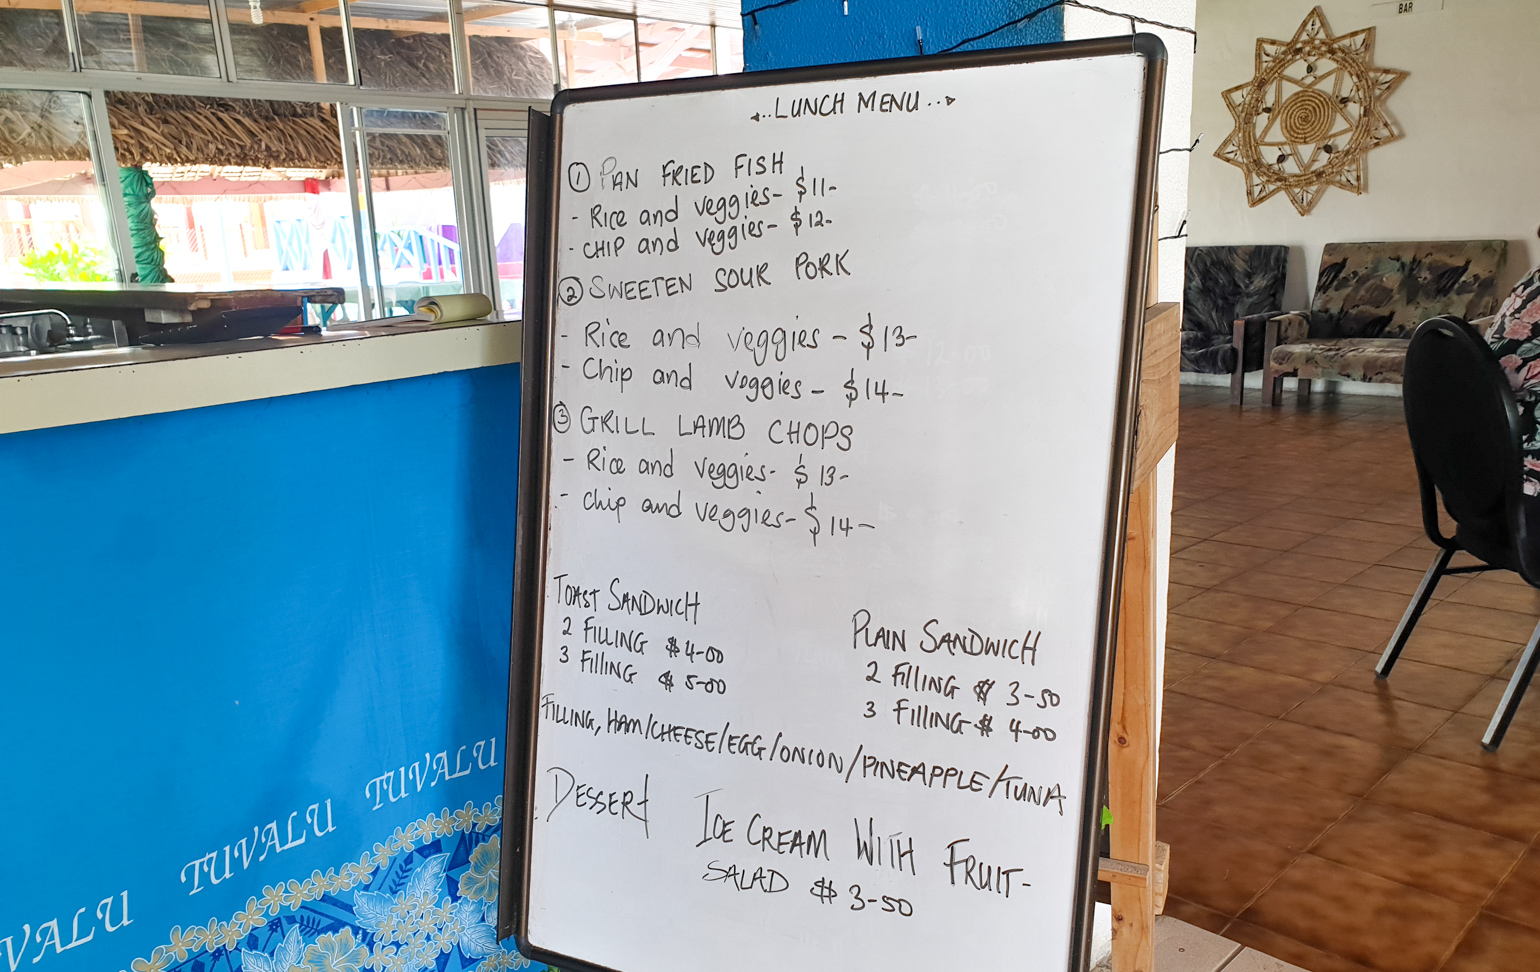 BAR
LUNCH MENU
① PAN FRIED FISH
- Rice and veggies- $11-
- CHIP and veggies- $12-
② SWEETEN SOUR PORK
- Rice and veggies - $13-
- Chip and veggies - $14-
③ GRILL LAMB CHOPS
- Rice and veggies- $13-
- Chip and veggies- $14-
TOAST SANDWICH
2 FILLING $4-00
3 FILLING $ 5-00
PLAIN SANDWICH
2 FILLING $ 3-50
3 FILLING $ 4-00
FILLING, HAM/CHEESE/EGG/ONION/PINEAPPLE/TUNA
DESSERT ICE CREAM WITH FRUIT-
SALAD $ 3-50
TUVALU
TUVALU
VALU